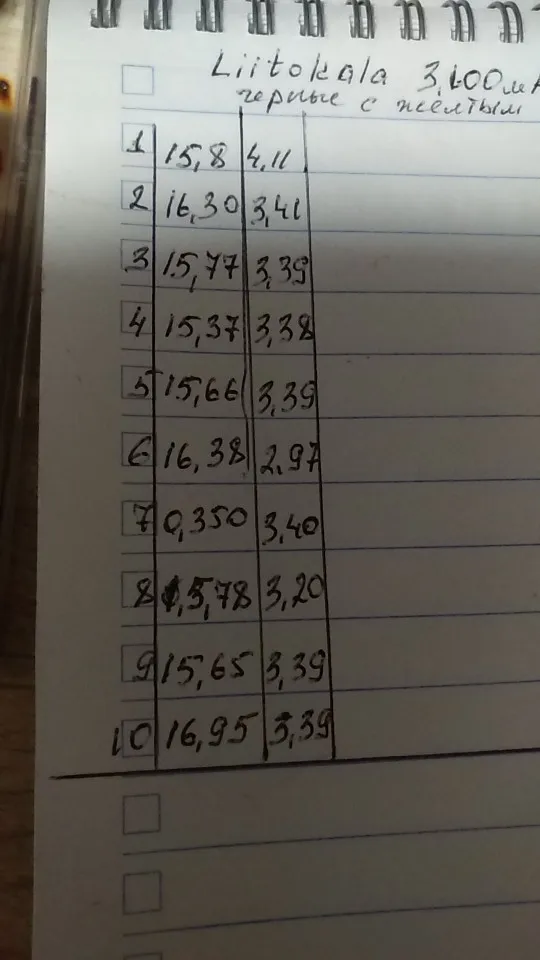 Liitokala 3,100м
черные с жёлтым
1 15,8 4,11
2 16,30 3,41
3 15,77 3,39
4 15,37 3,38
5 15,66 3,39
6 16,38 2,97
7 0,350 3,40
8 15,78 3,20
9 15,65 3,39
10 16,95 3,39